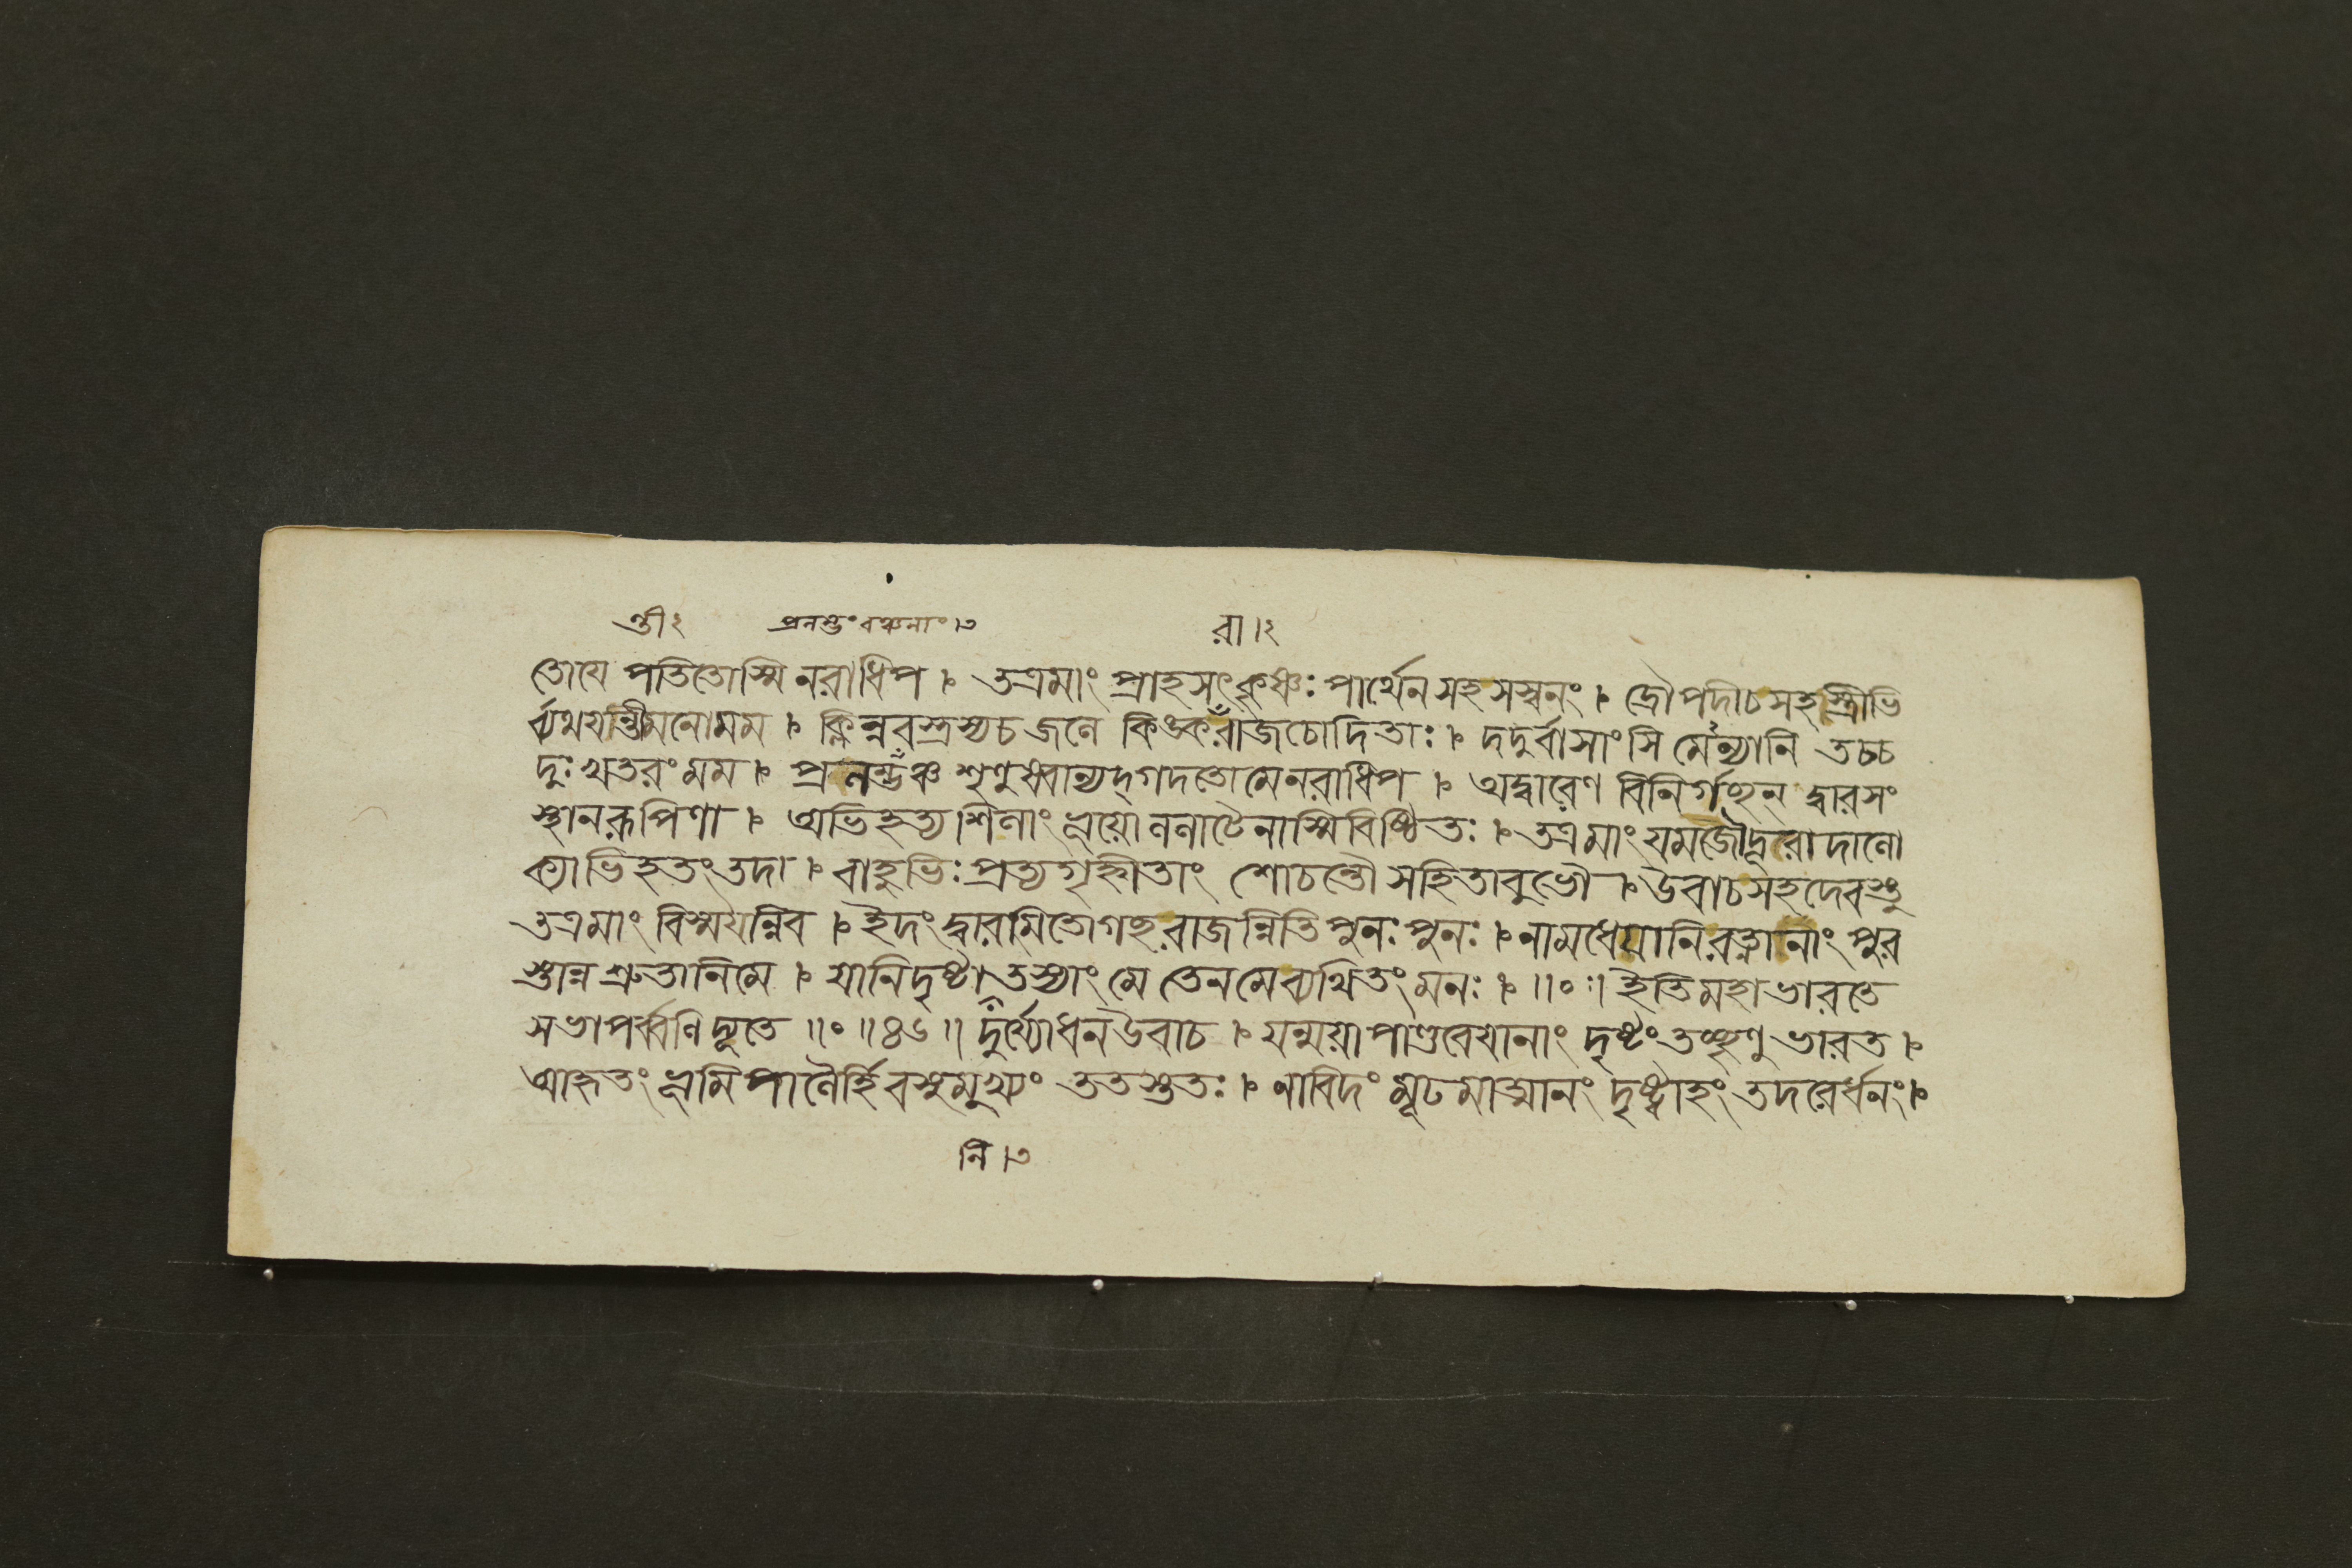 ন্তী২ প্রলম্ভং বঞ্চনাং।৩ রা।২
তোযে পতিতোস্মি নরাধিপ । তত্রমাং প্রাহসৎকৃষ্ণঃ পার্থেন সহ সস্বনং । দ্রৌপদীচসহস্ত্রীভি
র্ব্যথযন্তীমনোমম । ক্লিন্নবস্ত্রস্যচজলে কিঙ্করাঁজচোদিতাঃ । দদুর্বাসাংসি মেঽন্যানি তচ্চ
দুঃখতরংমম । প্রলম্ভঁঞ্চ শৃণুষ্বান্যদ্গদতোমেনরাধিপ । অদ্বারেণ বিনির্গচ্ছন্ দ্বারসং
স্থানরূপিণা । অভিহত্য শিলাং ভূয়োললাটেনাস্মিবিক্ষতঃ । তত্রমাংযমজৌদূরাদালো
ক্যাভিহতংতদা । বাহুভিঃ প্রত্যগৃহ্নীতাং শোচন্তৌ সহিতাবুভৌ । উবাচসহদেবস্তু
তত্রমাং বিস্ময়ন্নিব । ইদংদ্বারমিতোগচ্ছরাজন্নিতি পুনঃপুনঃ । নামধেয়ানিরত্নানাং পুর
স্তান্ন শ্রুতানিমে । যানিদৃষ্টানিতস্যাংমে তেনমেব্যথিতংমনঃ । ॥॰॥ ইতিমহাভারতে
সভাপর্ব্বণিদ্যূতে ॥॰॥৪৬॥ দুর্য্যোধনউবাচ । যন্ময়াপাণ্ডবেযানাং দৃষ্টংতচ্ছৃণুভারত ।
আহৃতং ভূমিপালৈর্হিবসুমুখ্যং ততস্ততঃ । নাবিদং মূঢমাত্মানং দৃষ্ট্বাহং তদরের্ধনং ।
নি।৩